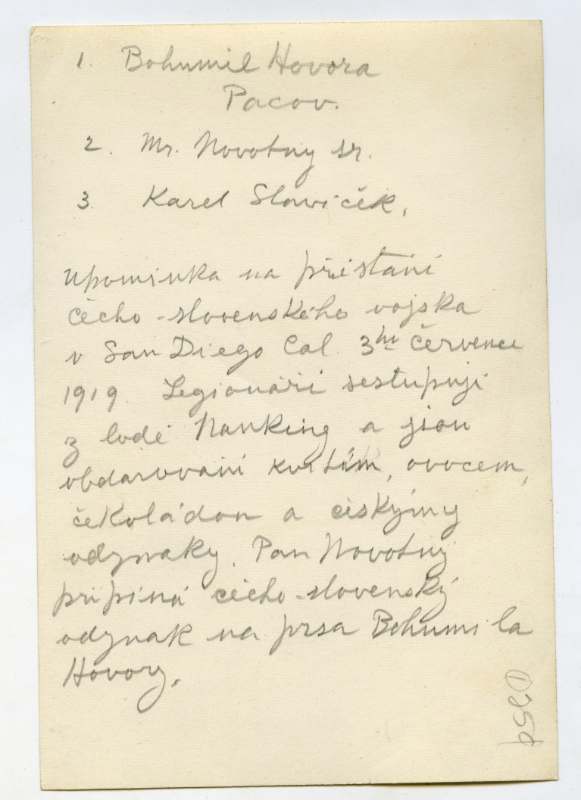 1. Bohumil Hovora
Pacov.
2. Mr. Novotny sr.
3. Karel Slavíček.
Upomínka na přistání
čecho-slovenského vojska
v San Diego Cal. 3ho července
1919. Legionáři sestupují
z lodě Nanking a jsou
obdarováni kvítím, ovocem,
čekoládou a českými
odznaky. Pan Novotný
připíná čecho-slovenský
odznak na prsa Bohumila
Hovory.